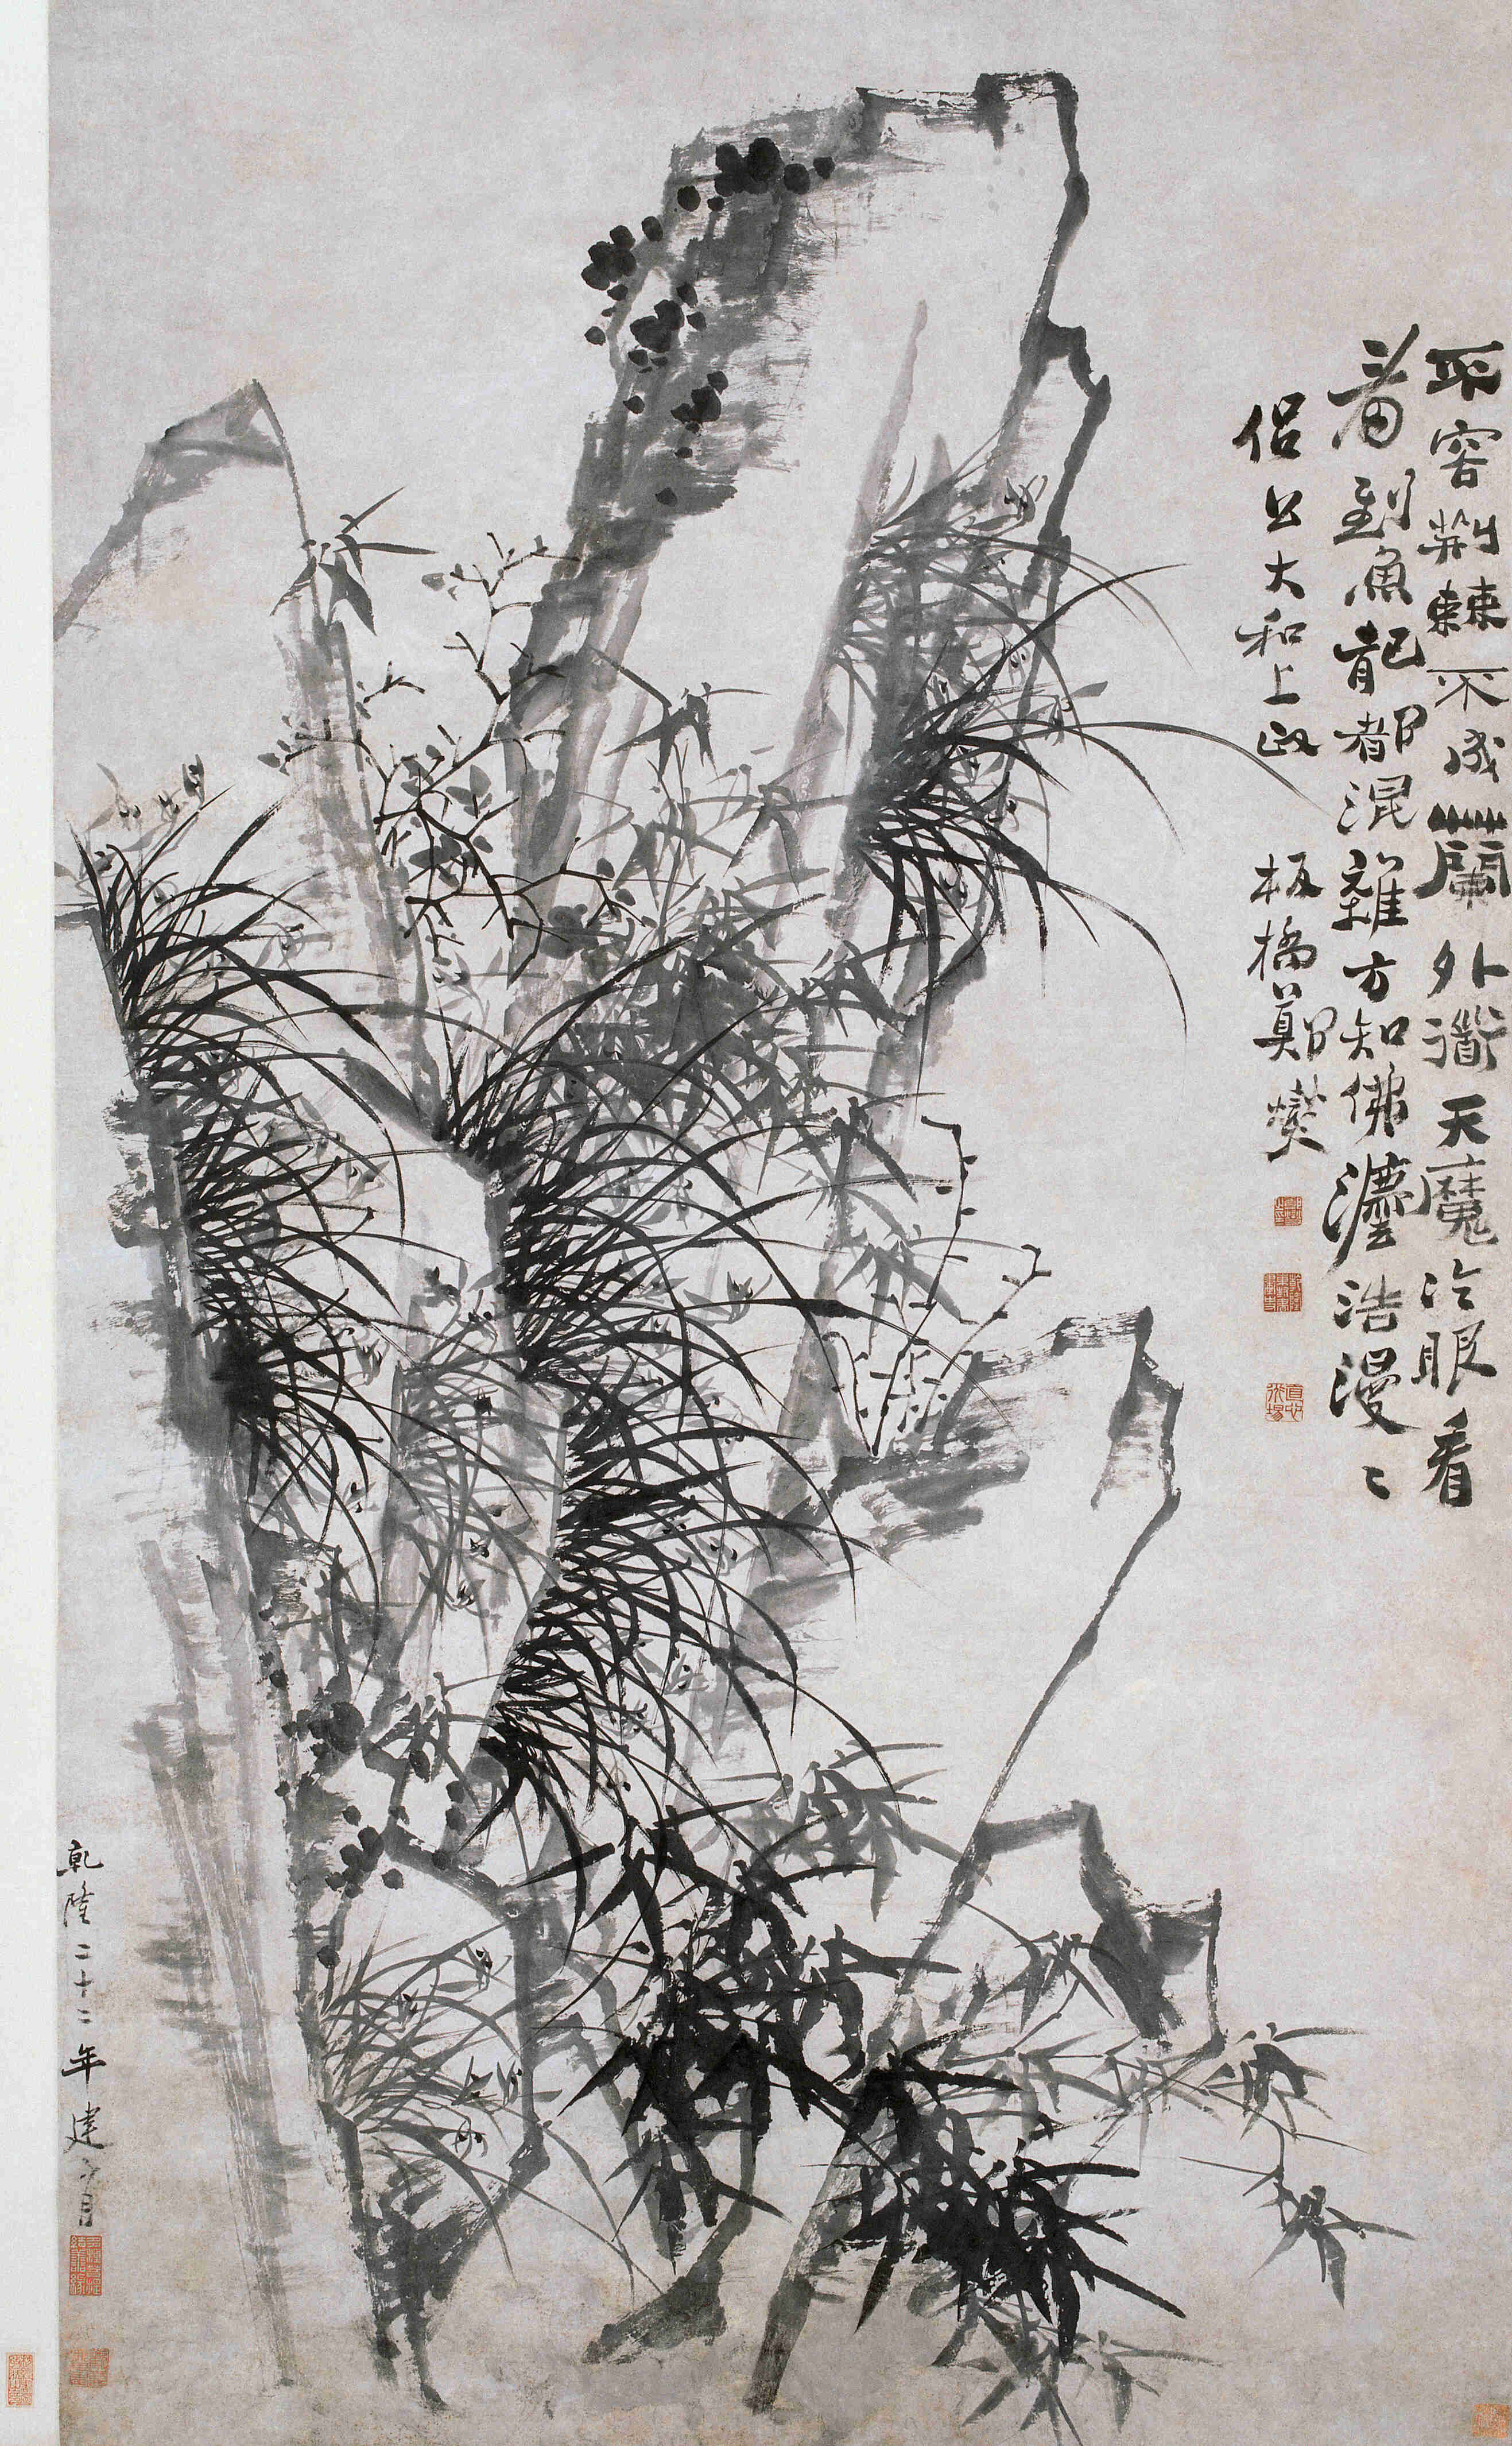 不容荆棘不成蘭外道天魔冷眼看
看到魚龍都混雜方知佛灋浩漫〻
侣公大和上政 板橋鄭燮
乾隆二十二年建子月